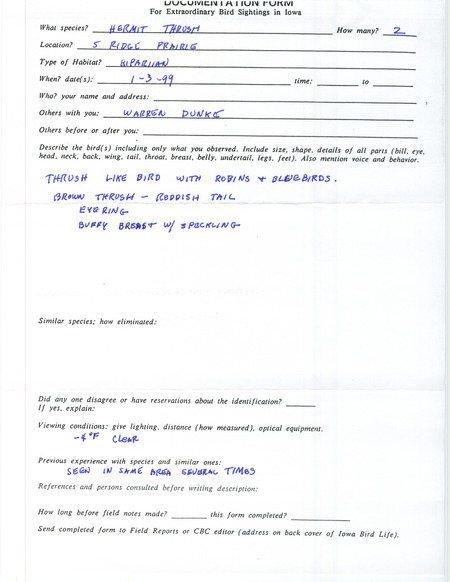 DOCUMENTATION FORM
For Extraordinary Bird Sightings in Iowa
What species? HERMIT THRUSH How many? 2
Location? 5 RIDGE PRAIRIE
Type of Habitat? RIPARIAN
When? date(s): 1-3-99 time: to
Who? your name and address:
Others with you: WARREN DUNKE
Others before or after you:
Describe the bird(s) including only what you observed. Include size, shape, details of all parts (bill, eye,
head, neck, back, wing, tail, throat, breast, belly, undertail, legs, feet). Also mention voice and behavior.
THRUSH LIKE BIRD WITH ROBINS + BLUEBIRDS.
BROWN THRUSH - REDDISH TAIL
EYE RING
BUFFY BREAST W/ SPECKLING
Similar species; how eliminated:
Did any one disagree or have reservations about the identification?
If yes, explain:
Viewing conditions: give lighting, distance (how measured), optical equipment.
-4°F CLEAR
Previous experience with species and similar ones:
SEEN IN SAME AREA SEVERAL TIMES
References and persons consulted before writing description:
How long before field notes made? this form completed?
Send completed form to Field Reports or CBC editor (address on back cover of Iowa Bird Life).